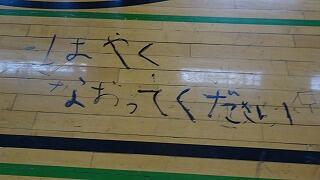 はやく
なおってください